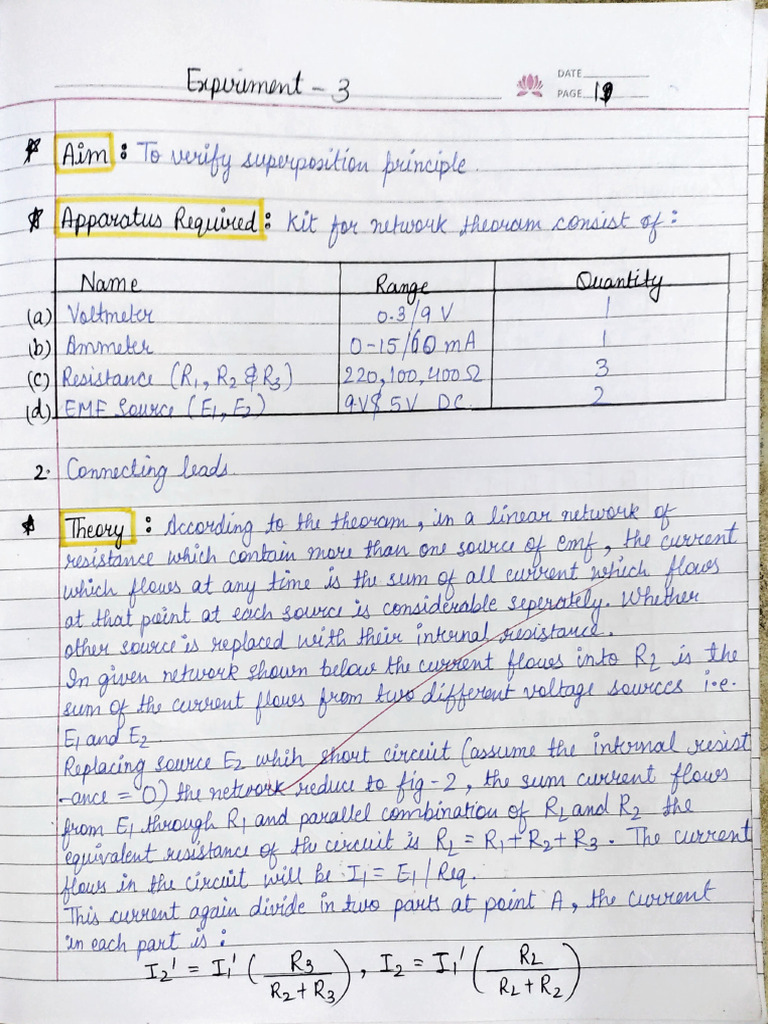 Experiment - 3
DATE
PAGE 19
* Aim : To verify superposition principle.
* Apparatus Required : Kit for network theoram consist of :
Name Range Quantity
(a) Voltmeter 0-3/9 V 1
(b) Ammeter 0-15/60 mA 1
(c) Resistance (R1, R2 & R3) 220, 100, 400Ω 3
(d) EMF Source (E1, E2) 9V& 5V DC. 2
2. Connecting leads.
* Theory : According to the theoram, in a linear network of
resistance which contain more than one source of emf, the current
which flows at any time is the sum of all current which flows
at that point at each source is considerable seperately. Whether
other source is replaced with their internal resistance.
In given network shown below the current flows into R2 is the
sum of the current flows from two different voltage sources i.e.
E1 and E2
Replacing source E2 whih short circuit (assume the internal resist
-ance = 0) the network reduce to fig-2, the sum current flows
from E1 through R1 and parallel combination of RL and R2 the
equivalent resistance of the circuit is RL = R1 + R2 + R3. The current
flows in the circuit will be I1 = E1 / Req.
This current again divide in two parts at point A, the current
in each part is :
I2' = I1' (R3 / R2 + R3), I2 = I1' (RL / RL + R2)